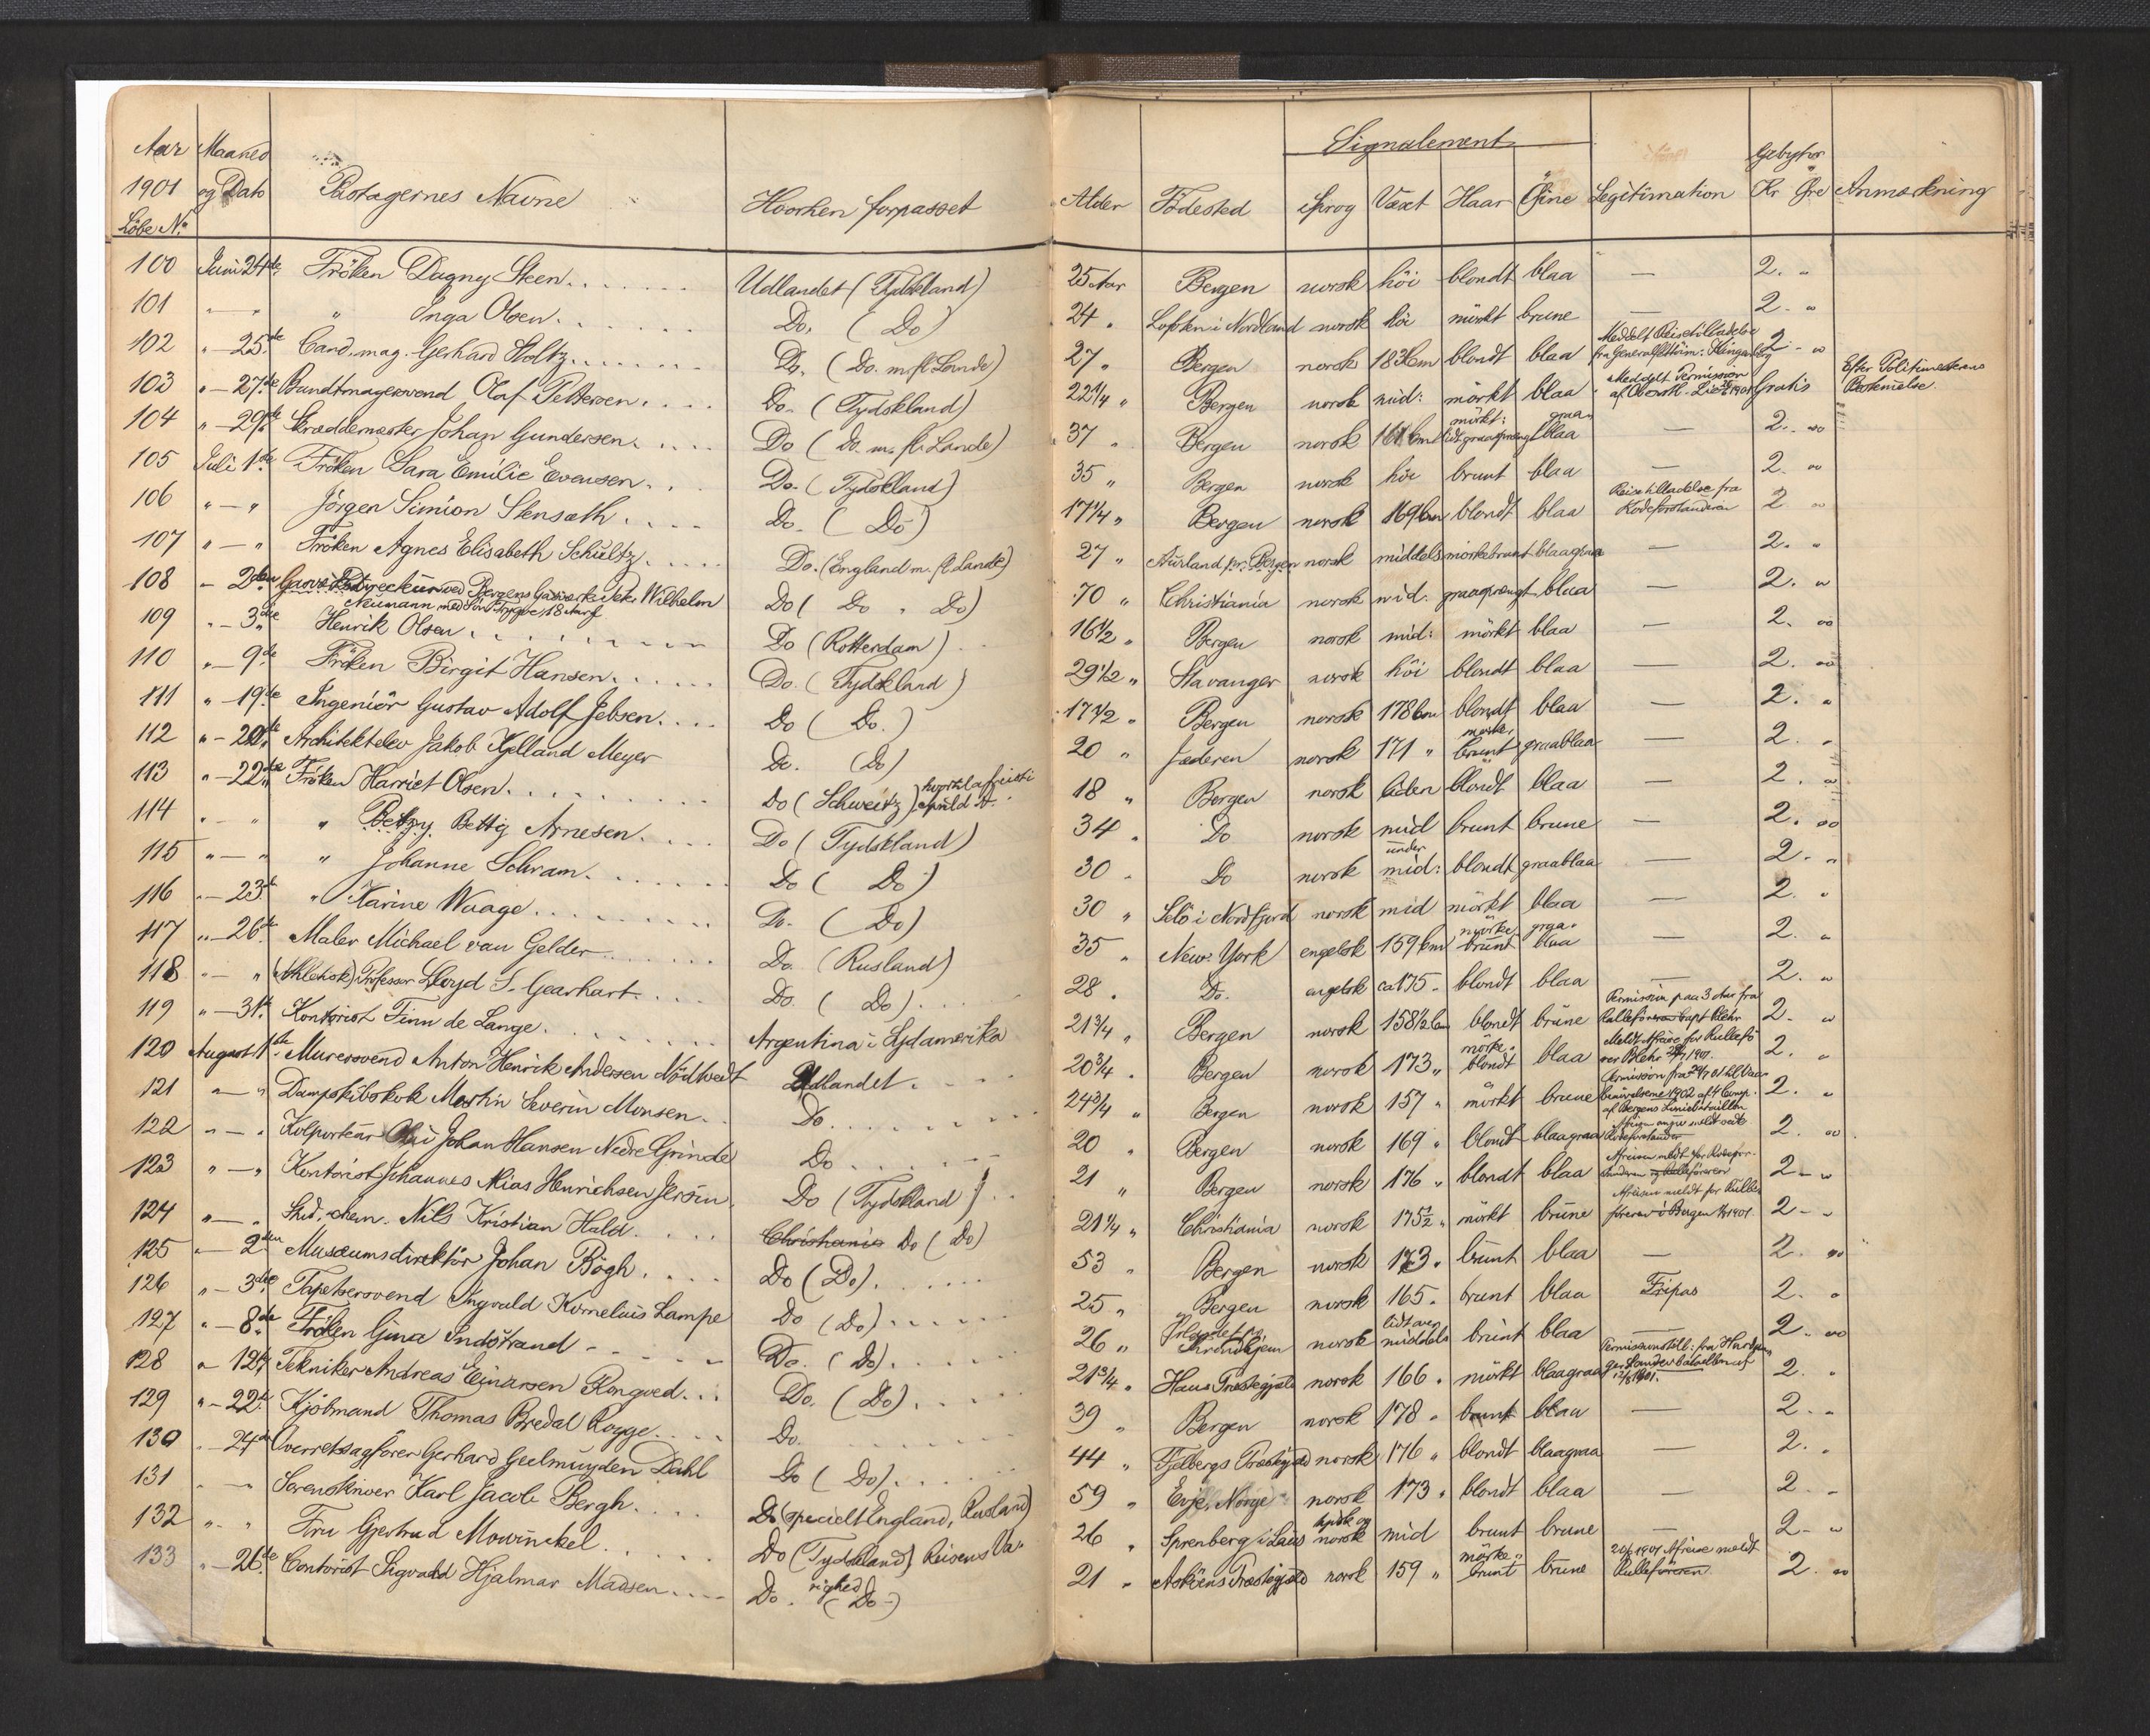 Aar Maaned
1901 og Dato Pastagernes Navne Hvorhen forpasset
Löbe No.
100 Juni 24de Fröken Dagny Steen Udlandet (Tydskland)
101 " — " " Inga Olsen Do. (Do)
102 " — 25de Cand. mag. Gerhard Holtz Do. (Do. m fl Lande)
103 " — 27de Bundtmagersvend Olaf Pettersen Do. (Tydskland)
104 " — 29de Skræddemester Johan Gundersen Do (Do. m. fl. Lande)
105 Juli 1ste Fröken Sara Emilie Evensen Do. (Tydskland)
106 " — " Jörgen Simion Stensæth Do. (Do)
107 " — " Fröken Agnes Elisabeth Schültz Do. (England m. fl. Lande)
108 " — 2den ved Bergens Gasværk Wilhelm Do (Do " Do)
Neumann med Sön Trygve, 18 Aar
109 " — 3die Henrik Olsen Do (Rotterdam)
110 " — 9de Fröken Birgit Hansen Do. (Tydskland)
111 " — 19de Ingeniör Gustav Adolf Jebsen Do (Do.)
112 " — 20de Architektelev Jakob Kjelland Meyer Do. (Do)
113 " — 22de Fröken Harriet Olsen Do (Schweitz)
114 " — " " Betzy Bettij Arnesen Do (Tydskland)
115 " — " " Johanne Schram Do (Do)
116 " — 23de " Karine Waage Do. (Do)
117 " — 26de Maler Michael van Gelder Do. (Rusland)
118 " — " (Athletisk) Professor Lloyd S. Gearhart Do. (Do)
119 " — 31te Kontorist Finn de Lange Argentina i Sydamerika
120 August 1ste Murersvend Anton Henrik Andersen Nödtvedt Udlandet
121 " — " Dampskibskok Martin Severin Monsen Do
122 " — " Kolportør Johan Hansen Nedre Grinde Do
123 " — " Kontorist Johannes Mias Henrichsen Jersin Do (Tydskland)
124 " — " Stud. chem. Nils Kristian Hald Christiania Do (Do)
125 " — 2den Musæumsdirektör Johan Bögh Do (Do)
126 " — 3die Tapetsersvend Ingvald Kornelius Lampe Do (Do)
127 " — 8de Fröken Gina Indstrand Do. (Do)
128 " — 12te Tekniker Andreas Einarsen Rongved Do. (Do)
129 " — 22de Kjöbmand Thomas Bredal Rogge Do.
130 " — 24de Overretssagförer Gerhard Geelmuyden Dahl Do (Do)
131 " — " Sorenskriver Karl Jacob Bergh Do (specielt England, Rusland)
132 " — " Fru Gjertrud Mowinckel Do (Tydskland) Reisens Va-
righed
133 " — 26de Contorist Sigvald Hjalmar Madsen Do. (Do)
Signalement
Alder Födested Sprog Væxt Haar Öine Legitimation Gebyhr Kr Öre Anmærkning
25 Aar Bergen norsk höi blondt blaa — 2. "
24 " Lofoten i Nordland norsk höi mörkt brune — 2. "
27 " Bergen norsk 183 cm blondt blaa Meddelt Reisetilladelse 2 - "
22 1/4 " Bergen norsk mid: mörkt blaa Meddelt Permission Gratis Efter Politimesterens Bestemmelse.
37 " Bergen norsk 161 cm mörkt: lidt graasprængt graa-blaa — 2. "
35 " Bergen norsk höi brunt blaa — 2. "
17 1/4 " Bergen norsk 169 cm blondt blaa Reisetilladelse fra Rodeforstanderen 2 "
27 " Aurland pr. Bergen norsk middels mörkebrunt blaagraa — 2. "
70 " Christiania norsk mid. graasprængt blaa — 2. "
16 1/2 " Bergen norsk mid: mörkt blaa — 2. "
29 1/2 " Stavanger norsk höi blondt blaa — 2. "
17 1/2 " Bergen norsk 178 cm blondt blaa — 2. "
20 " Jæderen norsk 171 " mörke-brunt graablaa — 2. "
18 " Bergen norsk liden blondt blaa — 2. "
34 " Do norsk mid brunt brune — 2. "
30 " Do norsk under mid: blondt graablaa — 2. "
30 " Selö i Nordfjord norsk mid mörkt blaa — 2. "
35 " New-York engelsk 159 cm mörke-brunt graa-blaa — 2. "
28 " Do. engelsk ca 175 " blondt blaa — 2. "
21 3/4 " Bergen norsk 158 1/2 cm blondt brune Permission paa 3 Aar fra Rulleföreren Capt Blehr 2. "
20 3/4 " Bergen norsk 173 " mörke-blondt blaa Meldt Afreise for Rulleförer Blehr 1901. 2. "
24 3/4 " Bergen norsk 157 " mörkt brune Permission fra af Bergens Liniebataillon 2. "
20 " Bergen norsk 169 " blondt blaagraa 2. "
21 " Bergen norsk 176 " blondt blaa Afreisen meldt for Rodefor-standeren og Rulleföreren 2 - "
21 1/4 " Christiania norsk 175 1/2 " mörkt brune Afreisen meldt for Rulle-föreren i Bergen 1901. 2 - "
53 " Bergen norsk 173 " brunt blaa — 2. "
25 " Bergen norsk 165 " brunt blaa Fripas 2. "
26 " Trondhjem norsk lidt over middels brunt blaa — 2. "
21 3/4 " Haus Præstegjæld norsk 166 " mörkt blaagraa 1901. 2. "
39 " Bergen norsk 178 " brunt blaa — 2. "
44 " Fjelbergs Præstegjæld norsk 176 " blondt blaagraa — 2. "
59 " Evje, Norge norsk 173 " blondt blaa — 2 "
26 " Sprenberg i Laus tydsk og norsk mid brunt brune — 2 - "
21 " Asköens Præstegjæld norsk 159 " mörke-brunt brune 1901 Afreise meldt Rulleföreren. 2. "